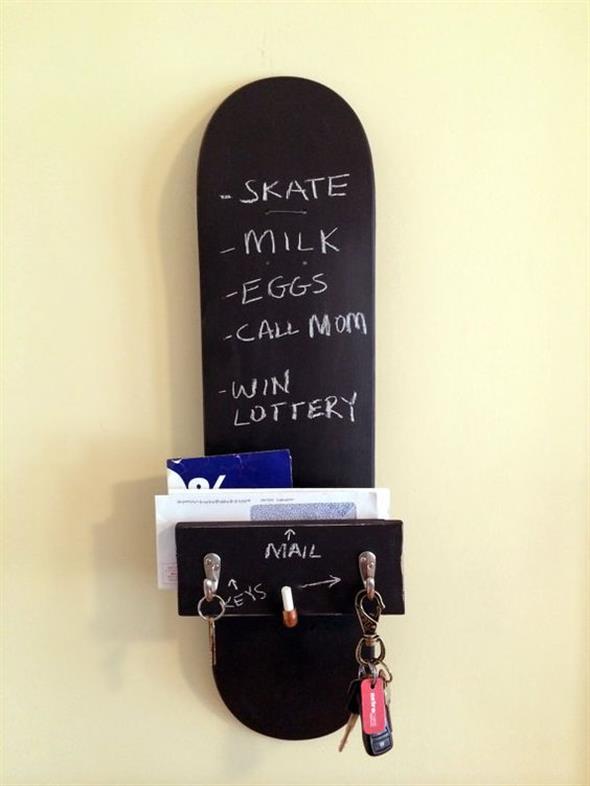 - SKATE
- MILK
- EGGS
- CALL MOM
- WIN
LOTTERY
%
↑
MAIL
↑ →
KEYS